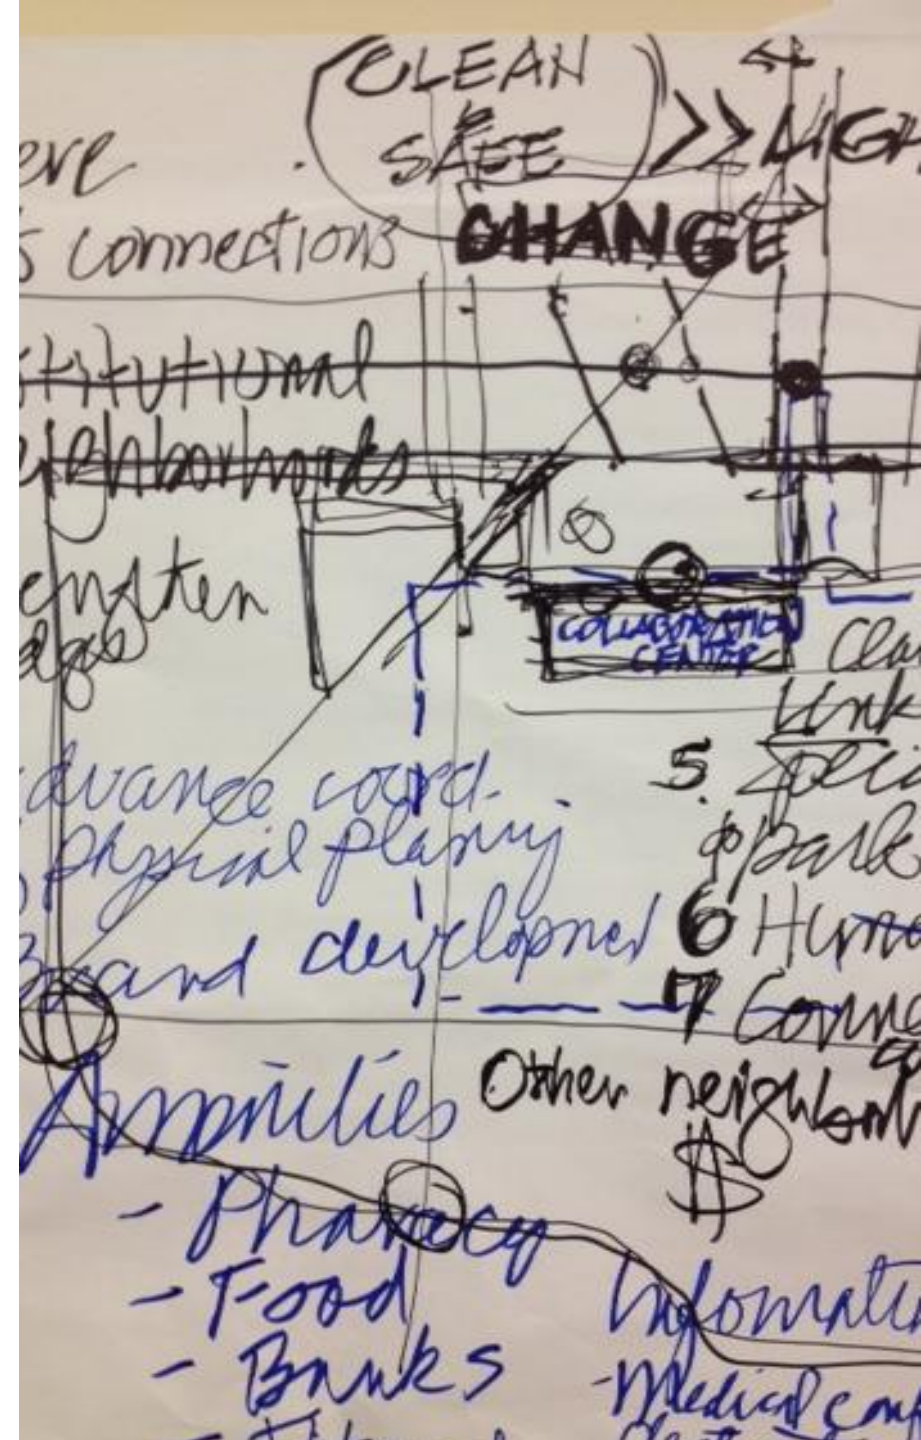 CLEAN
&
SAFE
>> LIGH
ere
s connections
CHANGE
stitutional
eighborhoods
engthen
COLLABORATION
CENTER
Clea
Link
5. Specia
& park
dvance coord.
physical planing
6 Huma
and developmen
7 Conne
Amenities
Other neighborh
$
- Pharmacy
- Food
- Banks
Informati
- Medical camp